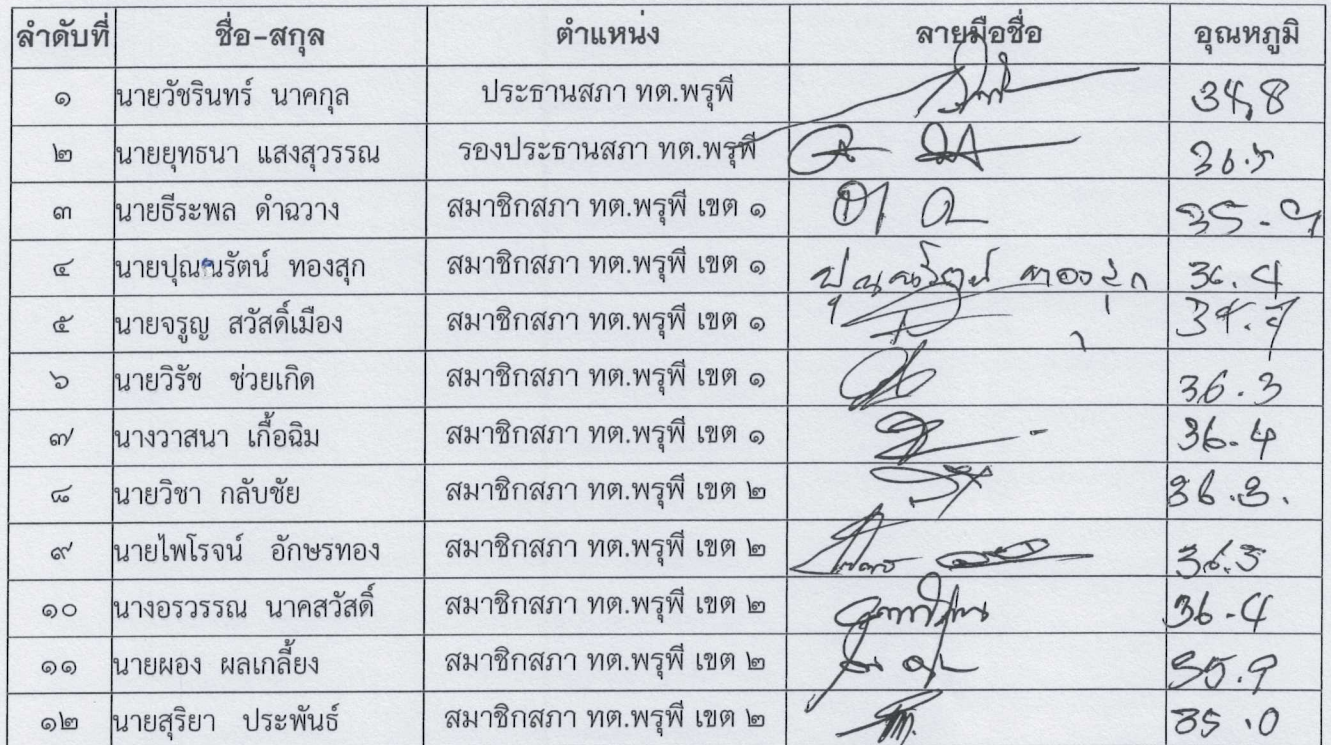 ลำดับที่ ชื่อ-สกุล ตำแหน่ง ลายมือชื่อ อุณหภูมิ
๑ นายวัชรินทร์ นาคกุล ประธานสภา ทต.พรุพี 34,8
๒ นายยุทธนา แสงสุวรรณ รองประธานสภา ทต.พรุพี 36.5
๓ นายธีระพล ดำฉวาง สมาชิกสภา ทต.พรุพี เขต ๑
๔ นายปุณณรัตน์ ทองสุก สมาชิกสภา ทต.พรุพี เขต ๑ ปุณณรัตน์ ทองสุก 36.4
๕ นายจรูญ สวัสดิ์เมือง สมาชิกสภา ทต.พรุพี เขต ๑
๖ นายวิรัช ช่วยเกิด สมาชิกสภา ทต.พรุพี เขต ๑ 36.3
๗ นางวาสนา เกื้อฉิม สมาชิกสภา ทต.พรุพี เขต ๑ 36.4
๘ นายวิชา กลับชัย สมาชิกสภา ทต.พรุพี เขต ๒ 36.3.
๙ นายไพโรจน์ อักษรทอง สมาชิกสภา ทต.พรุพี เขต ๒ 36.5
๑๐ นางอรวรรณ นาคสวัสดิ์ สมาชิกสภา ทต.พรุพี เขต ๒ 36.4
๑๑ นายผอง ผลเกลี้ยง สมาชิกสภา ทต.พรุพี เขต ๒ 35.9
๑๒ นายสุริยา ประพันธ์ สมาชิกสภา ทต.พรุพี เขต ๒ 35.0